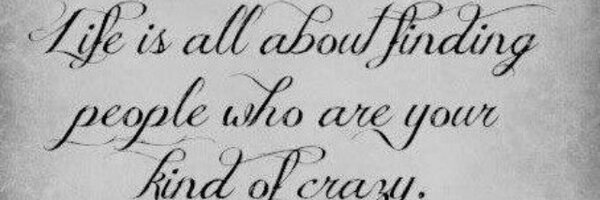 Life is all about finding
people who are your
kind of crazy.